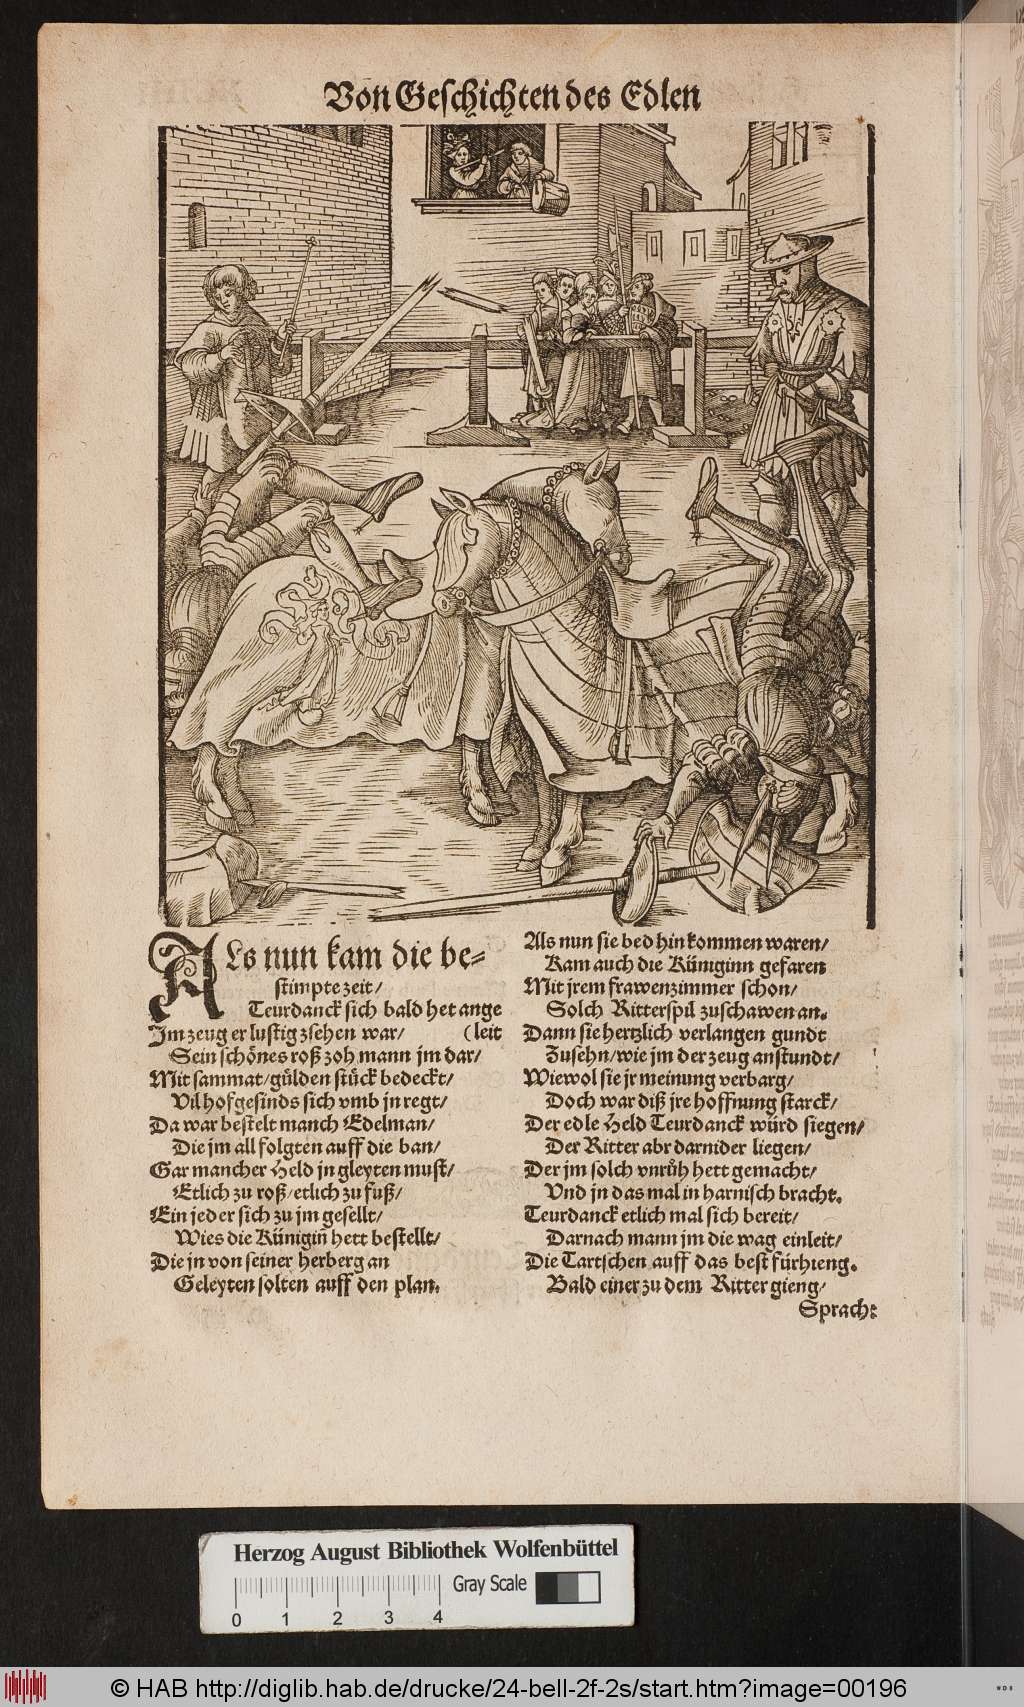 Von Geschichten des Edlen
ALs nun kam die be⸗
stimpte zeit/
Teurdanck sich bald het ange
Im zeug er lustig zsehen war/ (leit
Sein schönes roß zoh mann jm dar/
Mit sammat/gülden stück bedeckt/
Vil hofgesinds sich vmb jn regt/
Da war bestelt manch Edelman/
Die jm all folgten auff die ban/
Gar mancher Held jn gleyten must/
Etlich zu roß/etlich zu fuß/
Ein jeder sich zu jm gesellt/
Wies die Künigiñ hett bestellt/
Die jn von seiner herberg an
Geleyten solten auff den plan.
Als nun sie bed hin kommen waren/
Kam auch die Küniginn gefaren
Mit jrem frawenzimmer schon/
Solch Ritterspil zuschawen an.
Dann sie hertzlich verlangen gundt
Zusehn/wie jm der zeug anstundt/
Wiewol sie jr meinung verbarg/
Doch war diß jre hoffnung starck/
Der edle Held Teurdanck würd siegen/
Der Ritter abr darnider liegen/
Der jm solch vnrůh hett gemacht/
Vnd jn das mal in harnisch bracht.
Teurdanck etlich mal sich bereit/
Darnach mann jm die wag einleit/
Die Tartschen auff das best fürhieng.
Bald einer zu dem Ritter gieng/
Sprach:
Herzog August Bibliothek Wolfenbüttel
Gray Scale
0 1 2 3 4
© HAB http://diglib.hab.de/drucke/24-bell-2f-2s/start.htm?image=00196